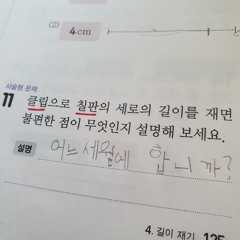 (2)
4 cm
서술형 문제
11 클립으로 칠판의 세로의 길이를 재면
불편한 점이 무엇인지 설명해 보세요.
설명 어느세월에 합니까?
4. 길이 재기 125